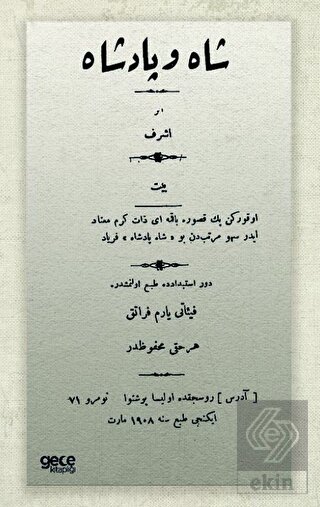 شاه و پادشاه
اثر
اشرف
بيت
اوقوركن پك قصوره باقمه ای ذات كرم معتاد
ايدر سهو مرتب‌دن بو « شاه پادشاه » فرياد
دور استبدادده طبع اولنمشدر.
فيئاتی يارم فرانقق
هر حقی محفوظدر
[ آدرس ] روسجقده اوليسا پوشنوا نومرو ٧١
ايكنجی طبع سنه ١٩٠٨ مارت
gece
kitaplığı
ekin